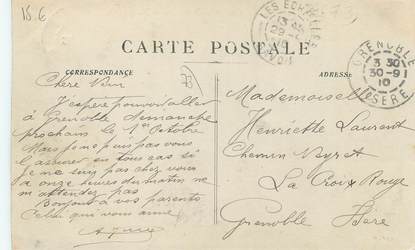 15.6
LES ECHELLES
29-
CARTE POSTALE
GRENOBLE
3 30
30-9
10
ISERE
CORRESPONDANCE
ADRESSE
J'espère pouvoir aller
à Grenoble dimanche
prochain le 1er Octobre
Mais je ne puis pas vous
l'assurer en tous cas si
je ne suis pas chez vous
a onze heures du matin ne
m'attendez pas
Bonjour à vos parents
Celui qui vous aime
Mademoiselle
Henriette Laurent
Chemin
La Croix Rouge
Grenoble Isère